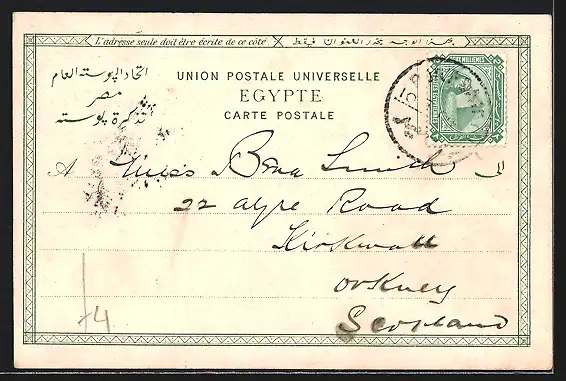 L'adresse seule doit être écrite de ce côté
اتحاد البوسته العام
مصر
تذكرة بوسته
UNION POSTALE UNIVERSELLE
EGYPTE
CARTE POSTALE
A Miss Bena Smith الى
22 Ayre Road
Kirkwall
Orkney
Scotland
74